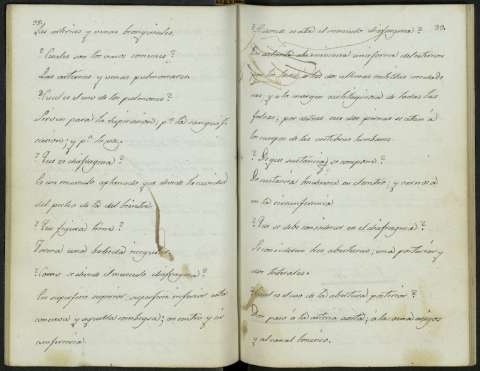 38.
Las arterias y venas bronquiales.
? Cuales son los vasos comunes?
Las arterias y venas pulmonares.
? Cual es el uso de los pulmones?
Sirven para la respiracion, pª la sanguifi-
cacion, y pª la voz.
? Que es diafragma?
Es un musculo aplanado que divide la cavidad
del pecho de la del vientre.
? Que figura tiene?
Forma una boveda irregular.
? Como se divide el musculo diafragma?
En superficie superior, superficie inferior esta
concava y aquella combexa; en centro y cir-
cunferencia.
39.
? Donde se ata el musculo diafragma?
adelante de
las dos ultimas costillas verdade
ras, y a la margen cartilaginosa de todas las
falsas; por detras sus dos piernas se atan á
los cuerpos de las vertebras lumbares.
? De que sustancia se compone?
De sustancia tendinosa en el centro; y carnosa
en la circunferencia.
? Que se debe considerar en el diafragma?
Se consideran tres aberturas; una posterior y
dos laterales.
? Cual es el uso de la abertura posterior?
Dar paso á la arteria aorta; á la vena azigos
y al canal toracico.